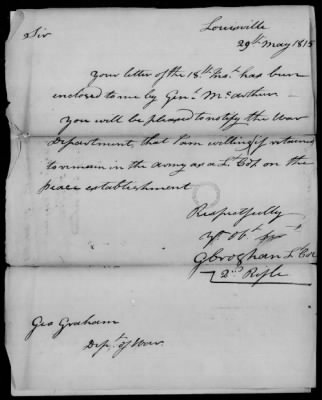 Louisville
29th May 1815
Sir
Your letter of the 18th Inst. has been
enclosed to me by Genl. McArthur
You will be pleased to notify the War
Department, that I am willing (if retained)
to remain in the army as a Lt Col. on the
peace establishment
Respectfully
Yr Obt
G Croghan Lt Col
2nd Rifle
Geo Graham
Dept. of War